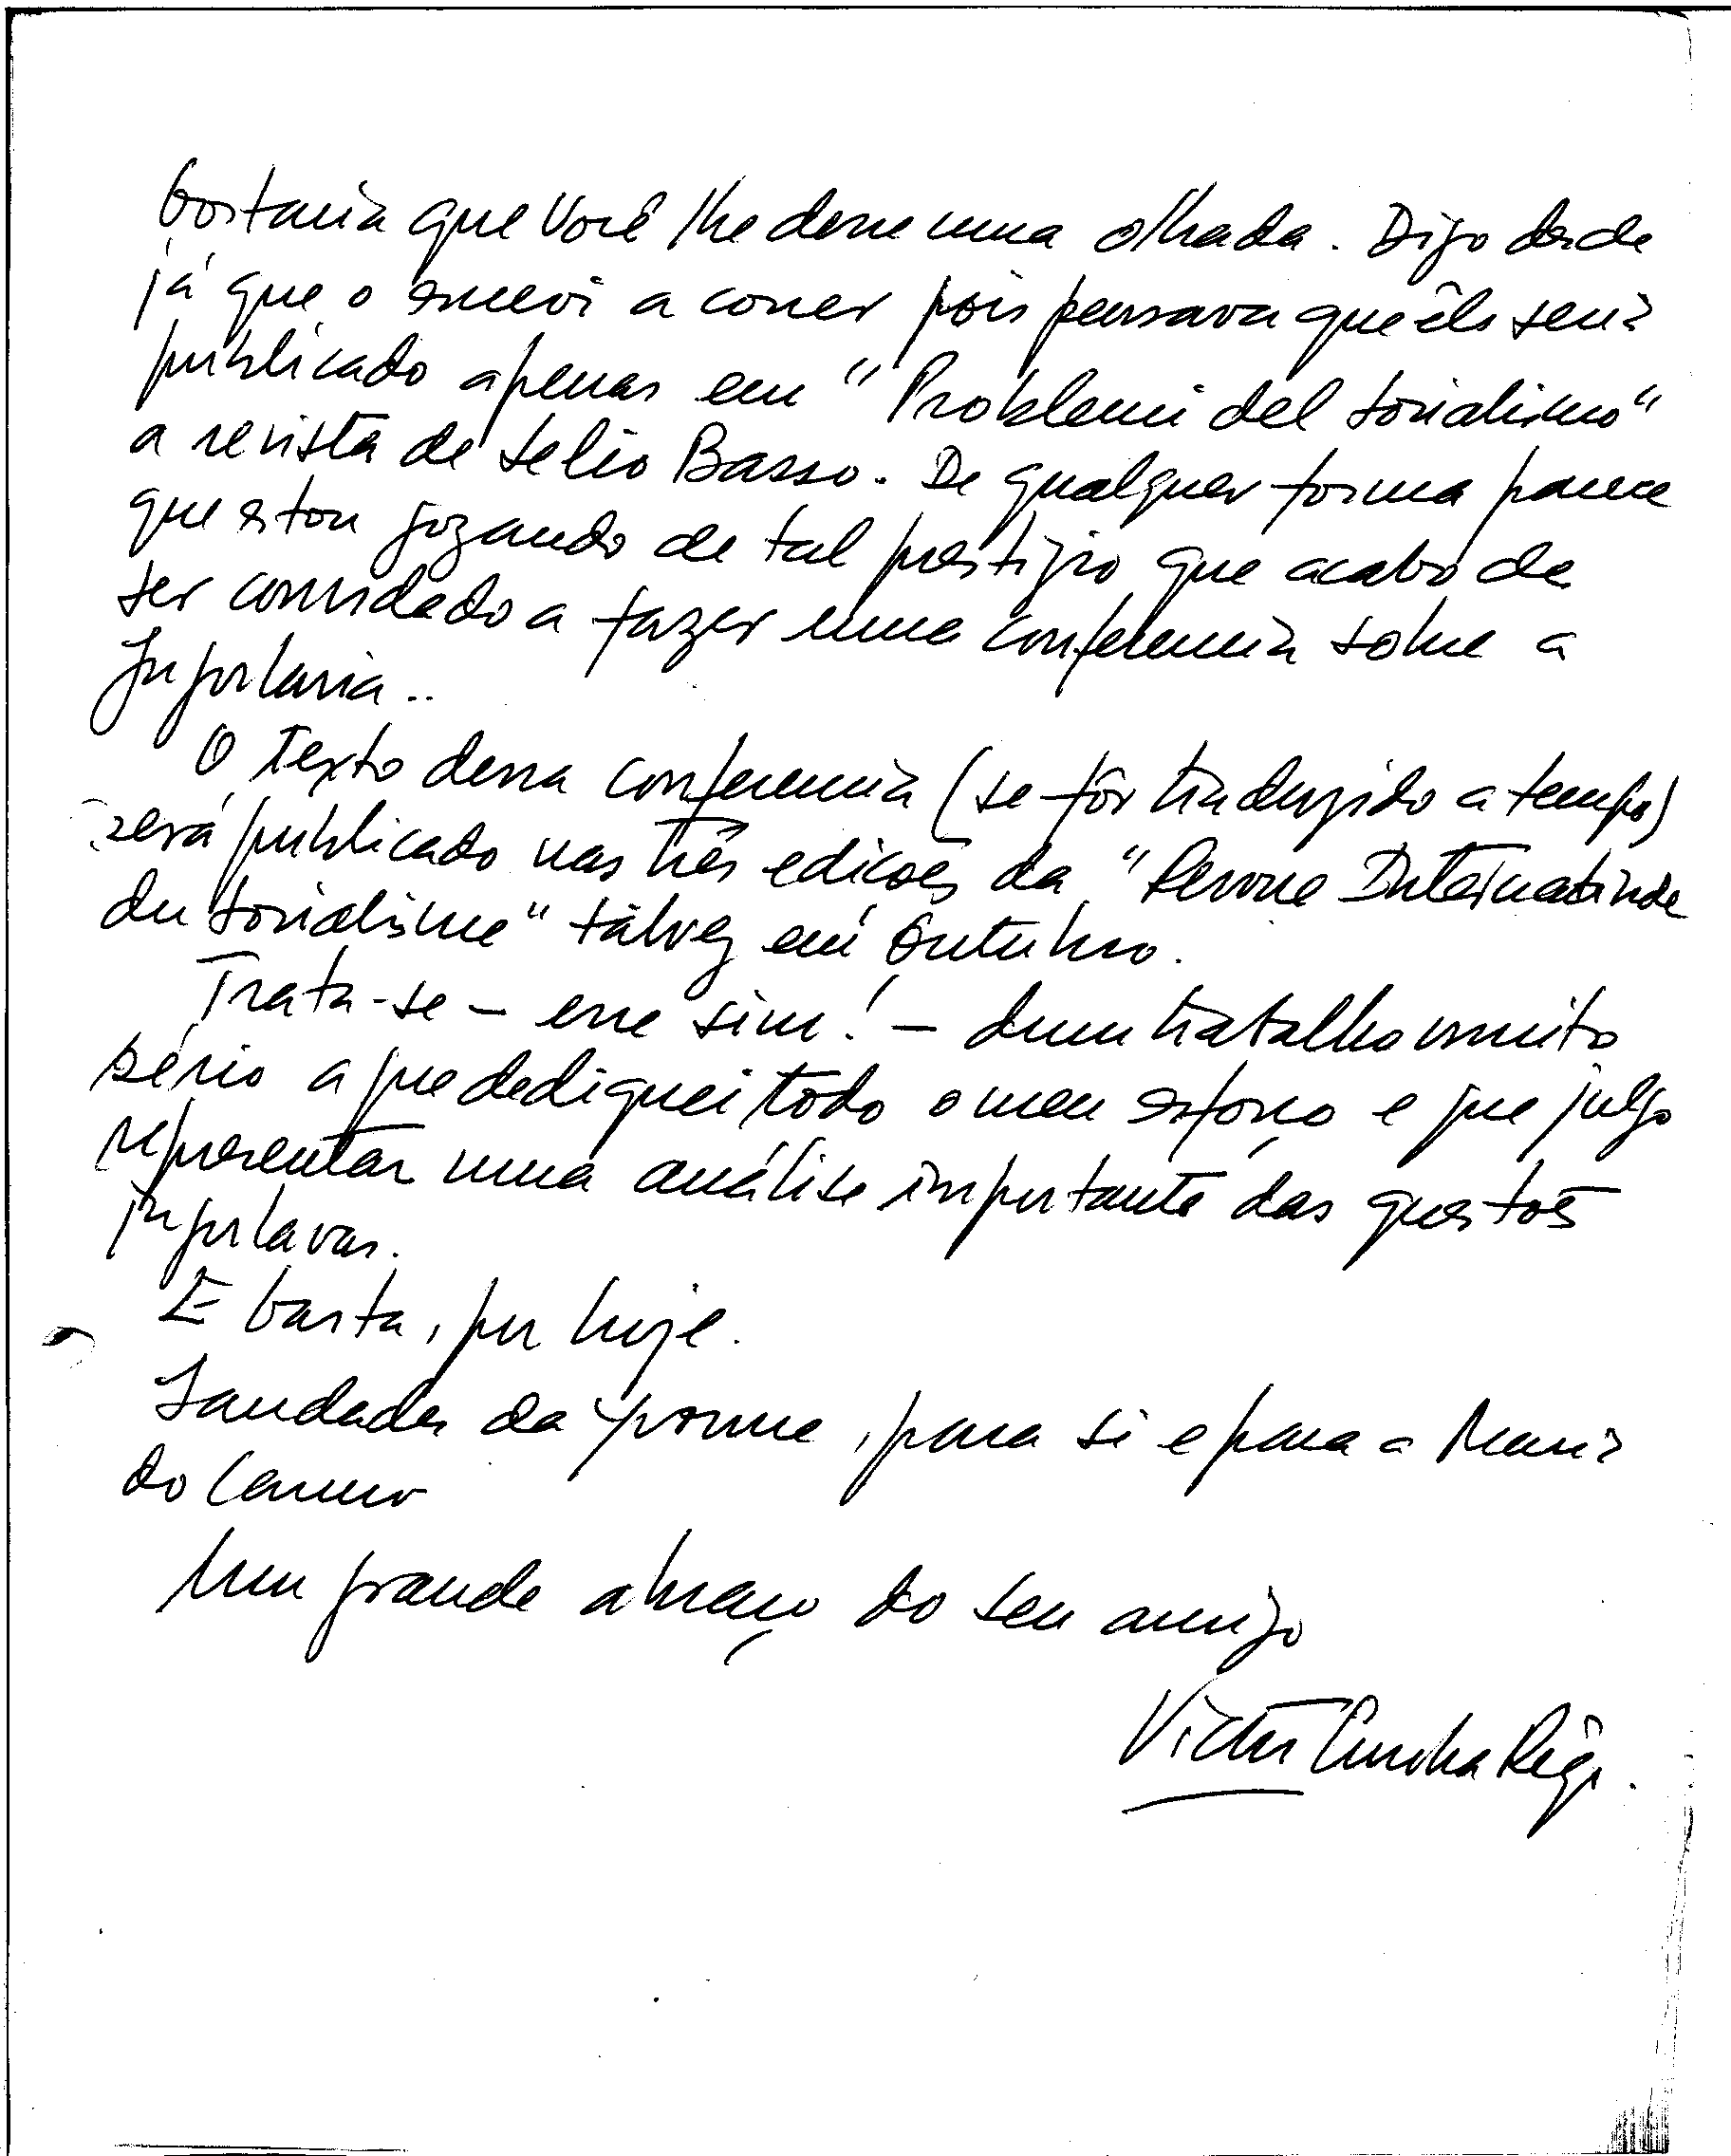 Gostaria que Você lhe desse uma olhada. Digo desde
já que o escrevi a correr pois pensava que êle seria
publicado apenas em "Problemi del Socialismo"
a revista de Lelio Basso. De qualquer forma parece
que estou gozando de tal prestígio que acabo de
ser convidado a fazer uma conferencia sobre a
Jugoslavia..
O texto dessa conferencia (se fôr traduzido a tempo)
será publicado nas três edicoẽs da "Revue Internationale
du Socialisme" talvez em Outubro.
Trata-se – esse sim! – dum trabalho muito
sério a que dediquei todo o meu esforço e que julgo
representar uma análise importante das questoẽs
jugoslavas.
E basta, por hoje.
Saudades da Yvonne, para si e para a Maria
do Carmo
Um grande abraço do seu amigo
Victor Cunha Rêgo.